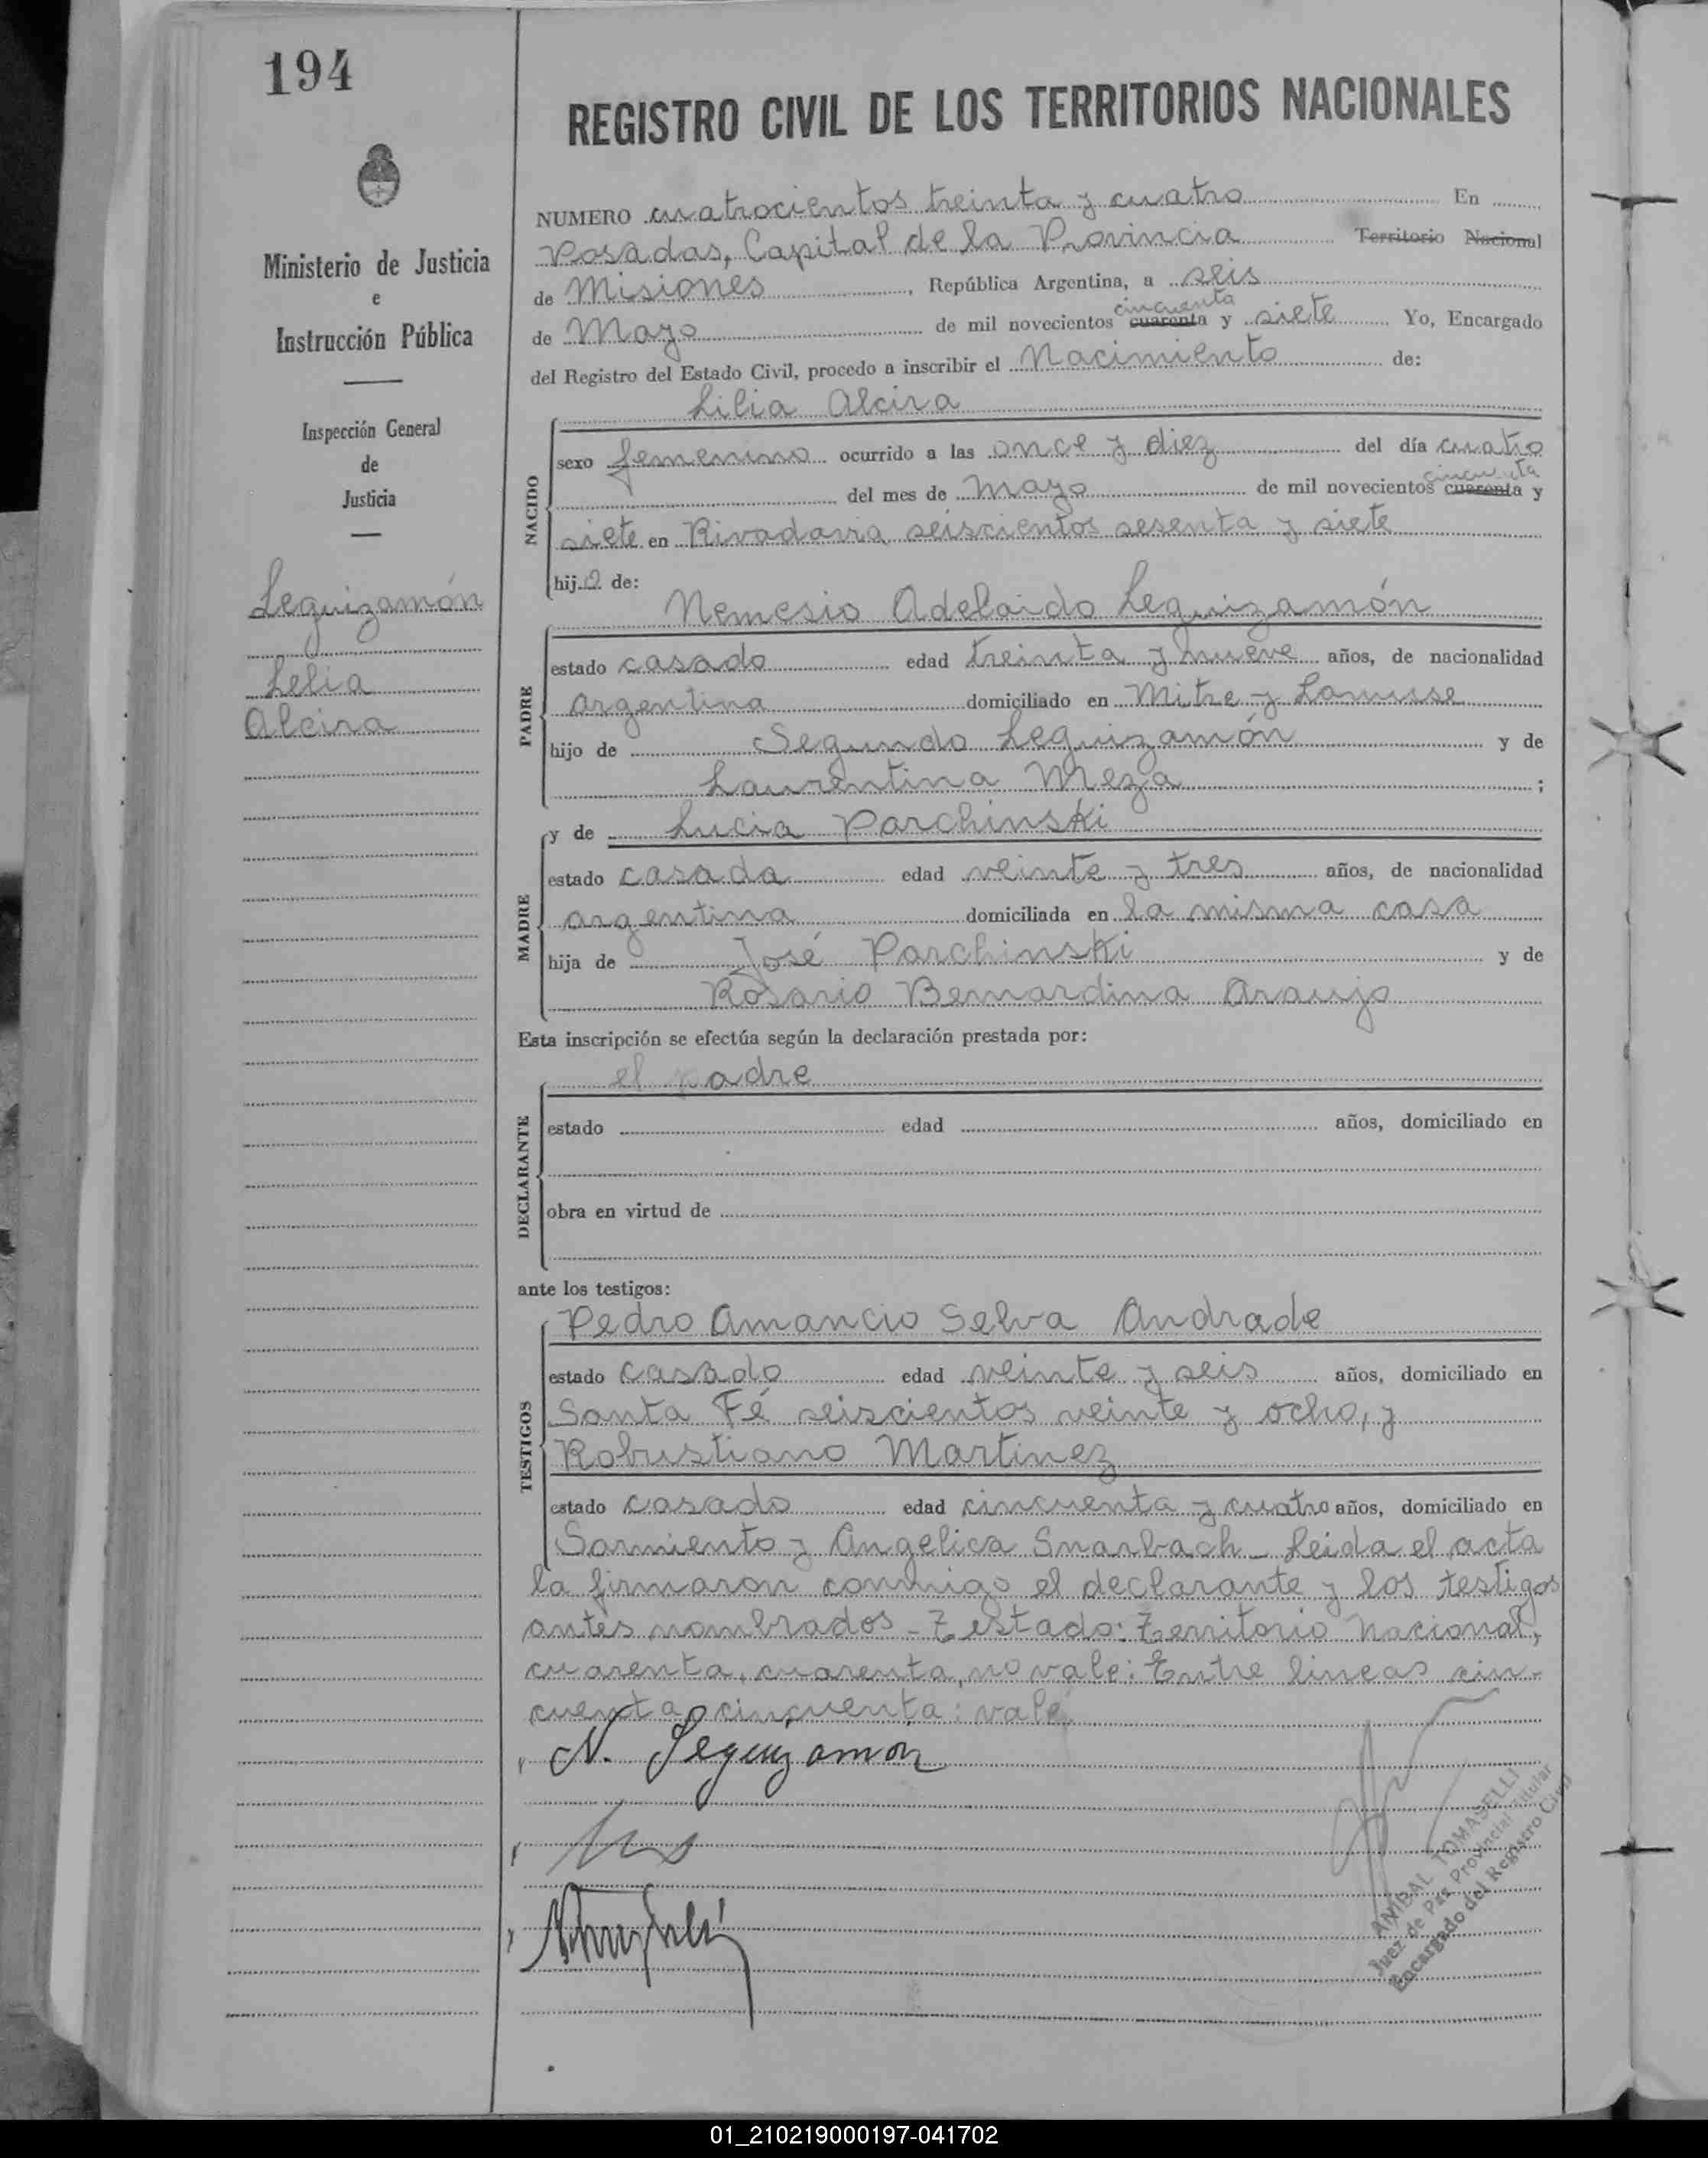 194
Ministerio de Justicia
e
Instrucción Pública
Inspección General
de
Justicia
Leguizamón
Lelia
Alcira
REGISTRO CIVIL DE LOS TERRITORIOS NACIONALES
NUMERO cuatrocientos treinta y cuatro En
Posadas, Capital de la Provincia Territorio Nacional
de Misiones, República Argentina, a seis
cincuenta
de Mayo de mil novecientos cuarenta y siete Yo, Encargado
del Registro del Estado Civil, procedo a inscribir el Nacimiento de:
Lilia Alcira
NACIDO
sexo femenino ocurrido a las once y diez del día cuatro
cincuenta
del mes de Mayo de mil novecientos cuarenta y
siete en Rivadavia seiscientos sesenta y siete
hija de:
Nemesio Adelaido Leguizamón
PADRE
estado casado edad treinta y nueve años, de nacionalidad
argentina domiciliado en Mitre y Lanusse
hijo de Segundo Leguizamón y de
Laurentina Meza ;
y de Lucia Parchinski
MADRE
estado casada edad veinte y tres años, de nacionalidad
argentina domiciliada en la misma casa
hija de José Parchinski y de
Rosario Bernardina Araujo
Esta inscripción se efectúa según la declaración prestada por:
el padre
DECLARANTE
estado edad años, domiciliado en
obra en virtud de
ante los testigos:
Pedro Amancio Selva Andrade
TESTIGOS
estado casado edad veinte y seis años, domiciliado en
Santa Fé seiscientos veinte y ocho, y
Robustiano Martinez
estado casado edad cincuenta y cuatro años, domiciliado en
Sarmiento y Angelica Leida el acta
la firmaron conmigo el declarante y los testigos
antes nombrados - Testado: Territorio Nacional,
cuarenta, cuarenta, no vale: Entre lineas cin-
cuenta, cincuenta: vale
N. Leguizamón
ANIBAL TOMASELLI
Juez de Paz Provincial Titular
Encargado del Registro Civil
01_210219000197-041702